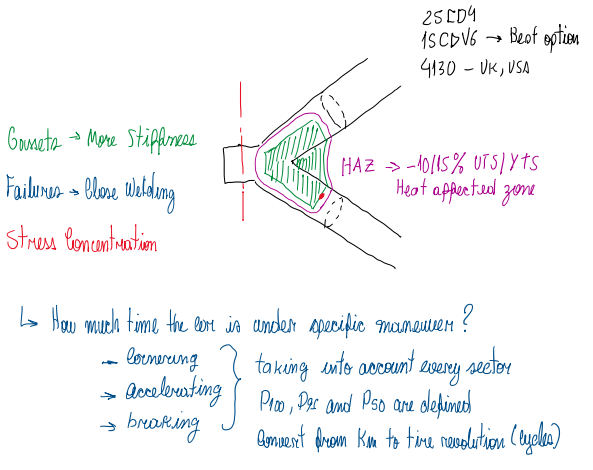 25CD4
15CDV6 → Best option
4130 - UK, USA
Gussets → More Stiffness
HAZ → -10/15% UTS/YTS
Heat affected zone
Failures → Close Welding
Stress Concentration
↳ How much time the car is under specific maneuver?
→ cornering
→ accelerating
→ braking
taking into account every sector
P100, P95 and P50 are defined
Convert from Km to tire revolution (cycles)